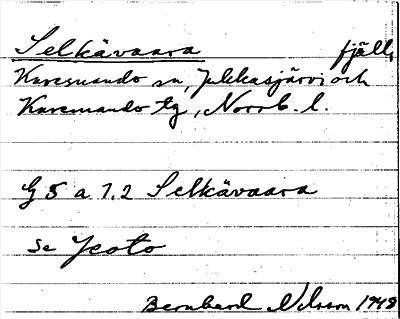 Selkävaara fjäll,
Karesuando sn, Jukkasjärvi och
Karesuando tg, Norrb. l.
G 5 a 7.2 Selkävaara
se Jeoto
Bernhard Nilsson 1948